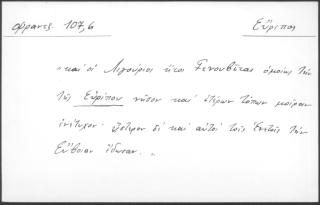 φραντζ. 107,6
Εὔριπος
"καὶ οἱ Λιγούριοι ἤτοι Γενουβῖται ὁμοίως τὴν
τῆς Εὐρίπου νῆσον καὶ ἑτέρων τόπων μοῖραν
ἐπέτυχον· ὕστερον δὲ καὶ αὐτοὶ τοῖς Ἐνετοῖς τὴν
Εὔβοιαν ἔδωσαν."